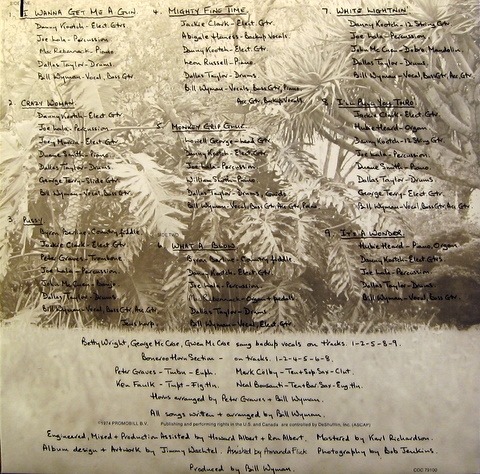 1. I WANNA GET ME A GUN
Danny Kootch - Elect. Gtrs
Joe Lala - Percussion
Mac Rebennack - Piano
Dallas Taylor - Drums
Bill Wyman - Vocal, Bass Gtr.
2. CRAZY WOMAN
Danny Kootch - Elect. Gtr.
Joe Lala - Percussion
Joey Murcia - Elect. Gtr.
Duane Smith - Piano
Dallas Taylor - Drums
George Terry - Slide Gtr.
Bill Wyman - Vocal, Bass Gtr.
3. PUSSY
Byron Berline - Country fiddle
Jackie Clark - Elect. Gtr
Peter Graves - Trombone
Joe Lala - Percussion.
John McEuen - Banjo
Dallas Taylor - Drums
Bill Wyman - Vocal, Bass Gtr, Acc. Gtr,
Jaws harp.
4. MIGHTY FINE TIME
Jackie Clark - Elect. Gtr.
Abigale Haness - Backup Vocals
Danny Kootch - Elect. Gtr.
Leon Russell - Piano.
Dallas Taylor - Drums
Bill Wyman - Vocals, Bass Gtr, Piano
Acc. Gtr, Backup Vocals.
5. MONKEY GRIP GLUE
Lowell George - Lead Gtr
Danny Kootch - Elect. Gtr.
Joe Lala - Percussion
William Smith - Piano
Dallas Taylor - Drums,
Bill Wyman - Vocals, Bass Gtr, Acc. Gtr, Piano
6. WHAT A BLOW
Byron Berline - Country fiddle
Danny Kootch - Elect. Gtr.
Joe Lala - Percussion.
Mac Rebennack - Organ + pedals
Dallas Taylor - Drums
Bill Wyman - Vocal, Elect. Gtr
7. WHITE LIGHTNIN'
Danny Kootch - 12 String Gtr
Joe Lala - Percussion
John McEuen - Dobro, Mandolin.
Dallas Taylor - Drums.
Bill Wyman - Vocal, Bass Gtr, Acc. Gtr
8. I'LL PULL YOU THRO'
Jackie Clark - Elect. Gtr
Hubie Heard - Organ
Danny Kootch - 12 String Gtr.
Joe Lala - Percussion.
Duane Smith - Piano
Dallas Taylor - Drums
George Terry - Elect. Gtr.
Bill Wyman - Vocal, Bass Gtr, Acc. Gtr
9. IT'S A WONDER
Hubie Heard - Piano, Organ
Danny Kootch - Elect. Gtrs
Joe Lala - Percussion.
Dallas Taylor - Drums
Bill Wyman - Vocal, Bass Gtr
Betty Wright, George McCrae, Gwen McCrae sang backup vocals on tracks. 1-2-5-8-9.
Bonaroo Horn Section - on tracks. 1-2-4-5-6-8.
Peter Graves - Trmbn - Euph. Mark Colby - Ten + Sop Sax - Clnt.
Ken Faulk - Tmpt - Flg Hn. Neal Bonsanti - Ten + Bar. Sax - Eng. Hn.
Horns arranged by Peter Graves + Bill Wyman.
All songs written + arranged by Bill Wyman.
©1974 PROMOBILL B.V. Publishing and performing rights in the U.S. and Canada are controlled by (ASCAP)
Engineered, Mixed + Production Assisted by Howard Albert + Ron Albert. Mastered by Karl Richardson.
Album design + Artwork by Jimmy Wachtel. Assisted by Amanda Flick Photography by Bob Jenkins.
Produced by Bill Wyman.
COC 79100